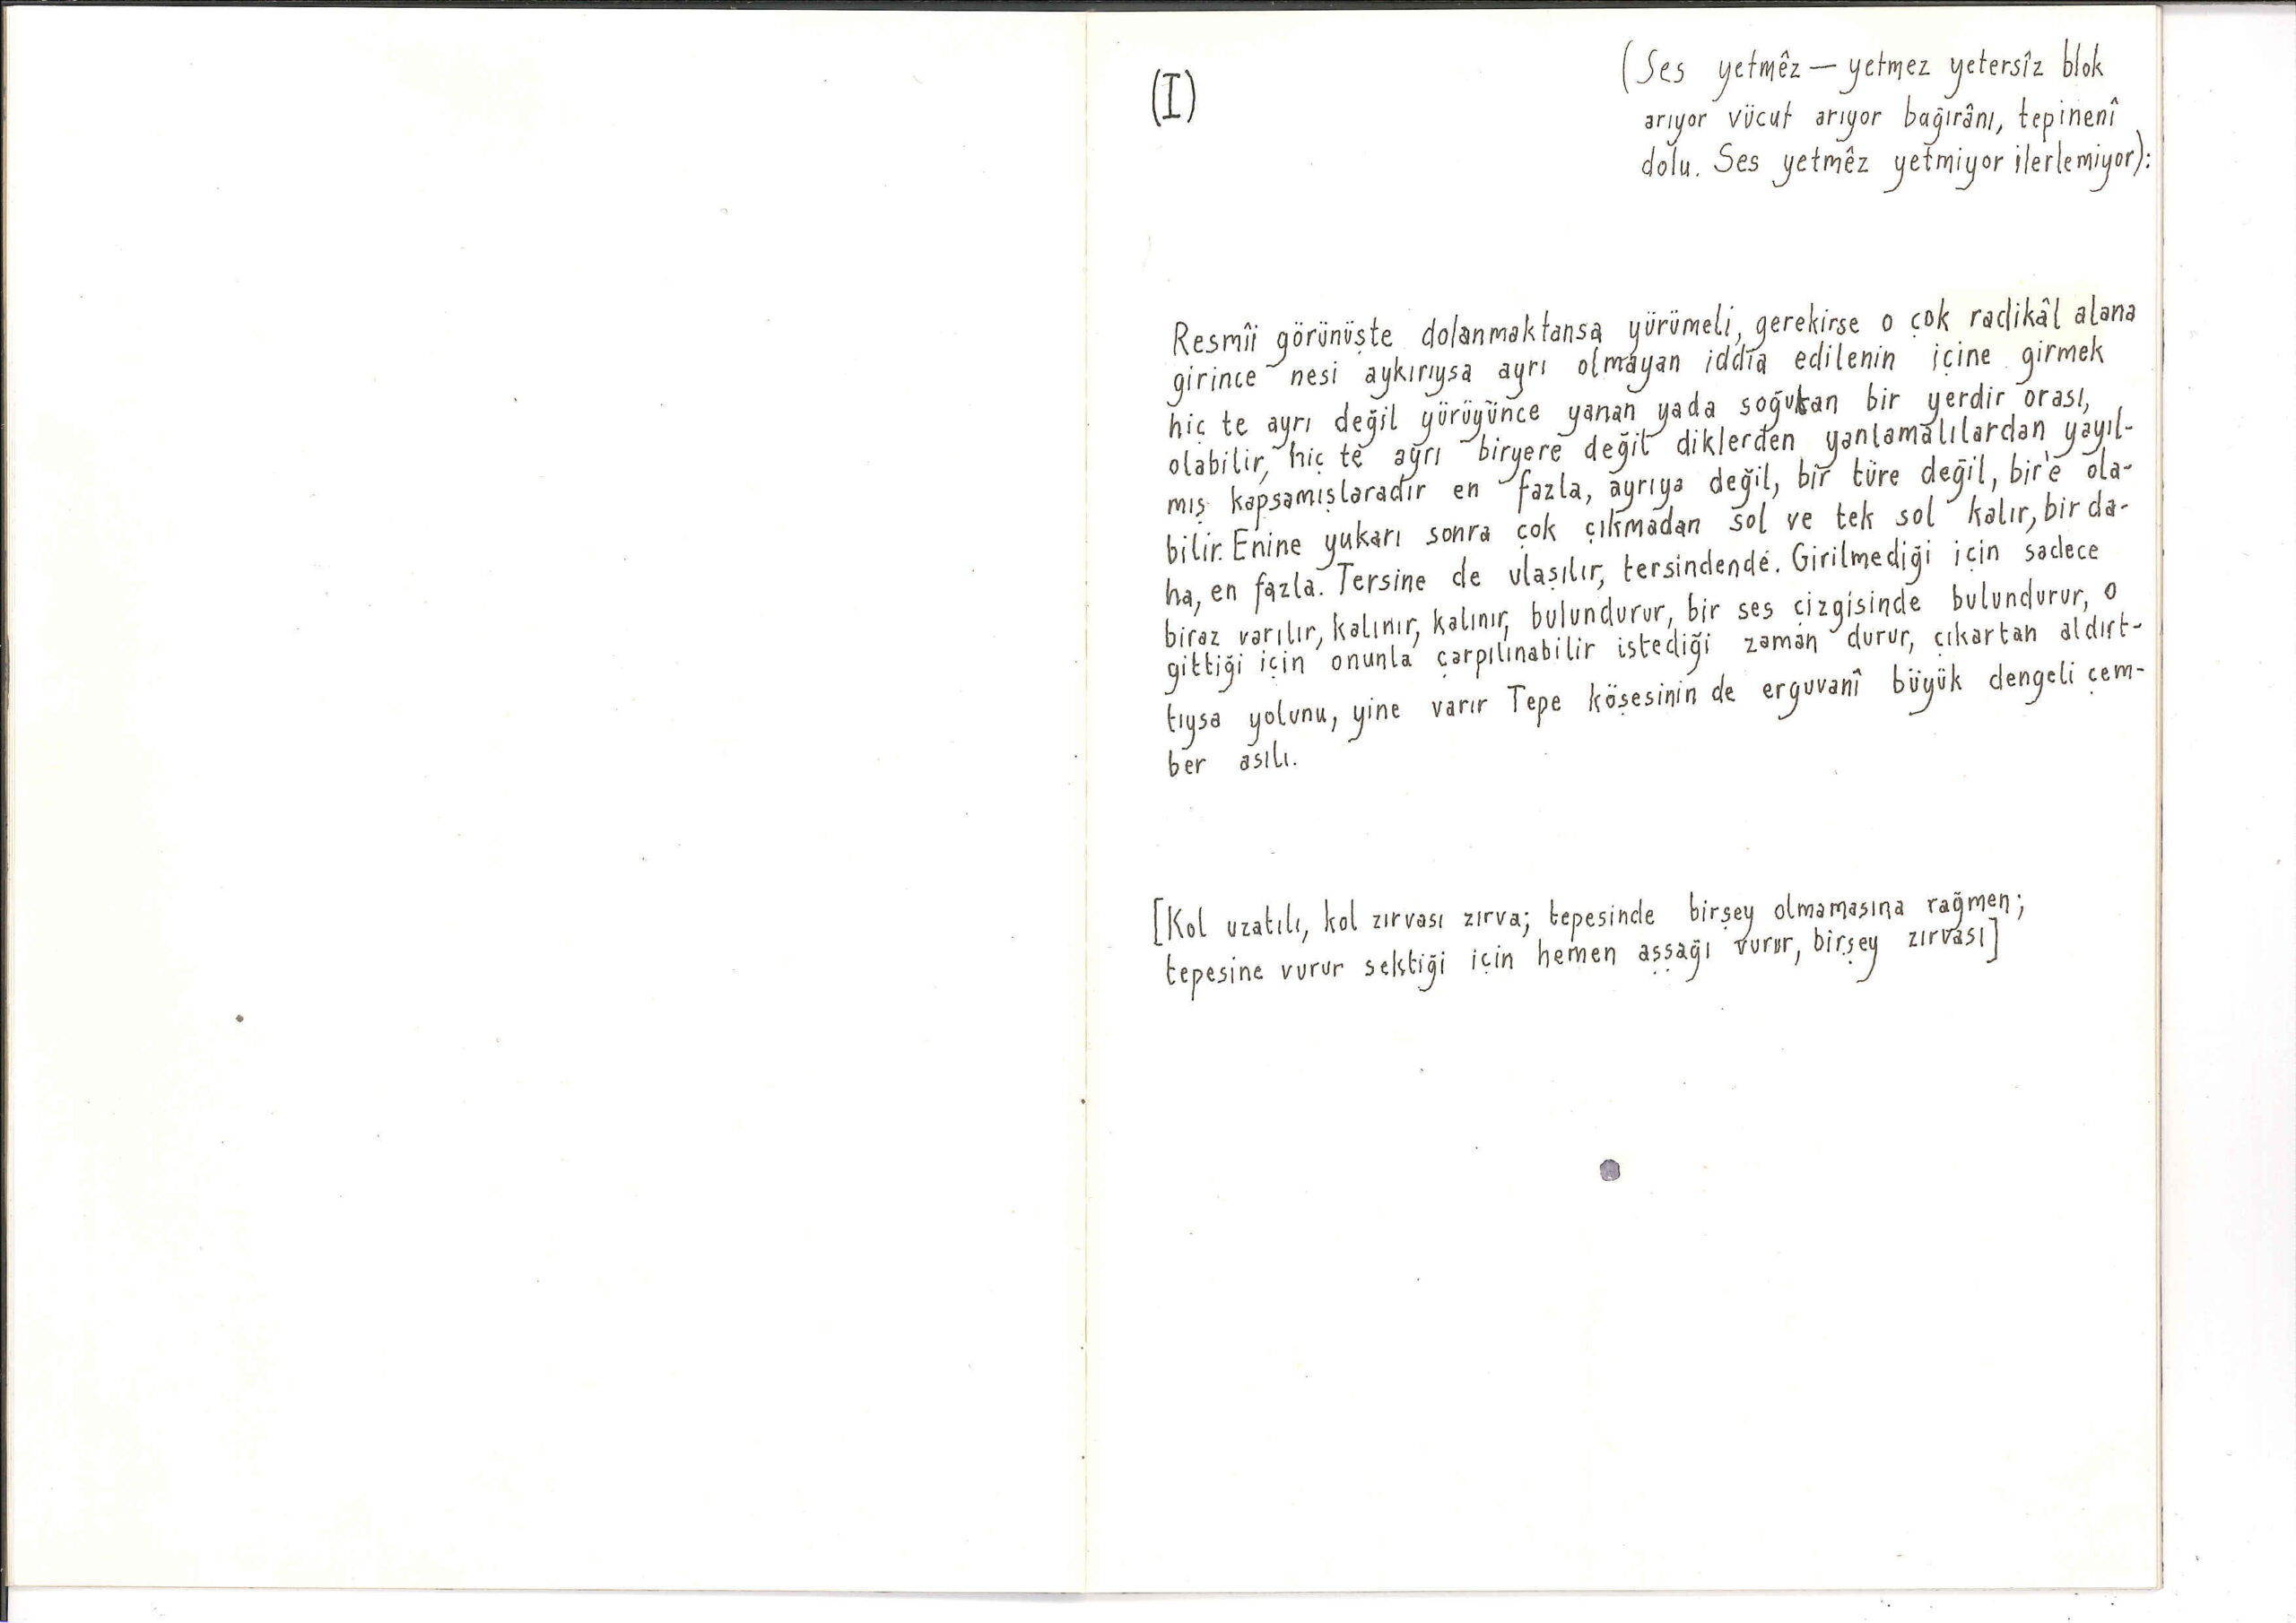 (I)
(Ses yetmêz — yetmez yetersîz blok
arıyor vücut arıyor bağırânı, tepinenî
dolu. Ses yetmêz yetmiyor ilerlemiyor):
Resmîi görünüşte dolanmaktansa yürümeli, gerekirse o çok radikâl alana
girince nesi aykırıysa ayrı olmayan iddîa edilenin içine girmek
hiç te ayrı değil yürüyünce yanan yada soğutan bir yerdir orası,
olabilir, hiç te ayrı biryere değil diklerden yanlamalılardan yayıl-
mış kapsamışlaradır en fazla, ayrıya değil, bir türe değil, bir'e ola-
bilir. Enine yukarı sonra çok çıkmadan sol ve tek sol kalır, bir da-
ha, en fazla. Tersine de ulaşılır, tersindende. Girilmediği için sadece
biraz varılır, kalınır, kalınır, bulundurur, bir ses çizgisinde bulundurur, o
gittiği için onunla çarpılınabilir istediği zaman durur, çıkartan aldırt-
tıysa yolunu, yine varır Tepe köşesinin de erguvanî büyük dengeli çem-
ber asılı.
[Kol uzatılı, kol zırvası zırva; tepesinde birşey olmamasına rağmen;
tepesine vurur sektiği için hemen aşşağı vurur, birşey zırvası]